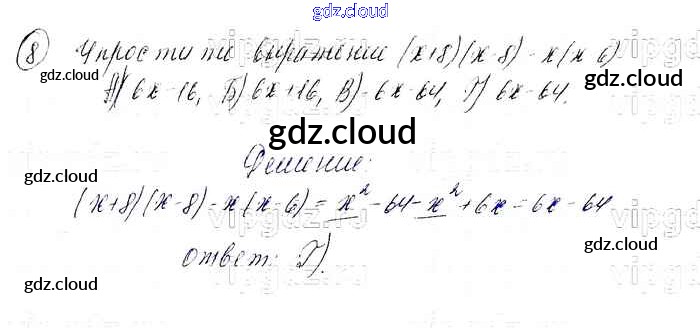 gdz.cloud
8 Упростите выражение (x+8)(x-8)-x(x-6)
gdz.cloud gdz.cloud
А) 6x-16, Б) 6x+16, В) -6x-64, Г) 6x-64.
gdz.cloud
Решение:
gdz.cloud gdz.cloud
(x+8)(x-8)-x(x-6) = x²-64-x²+6x=6x-64
ответ: Г).
gdz.cloud gdz.cloud
gdz.cloud